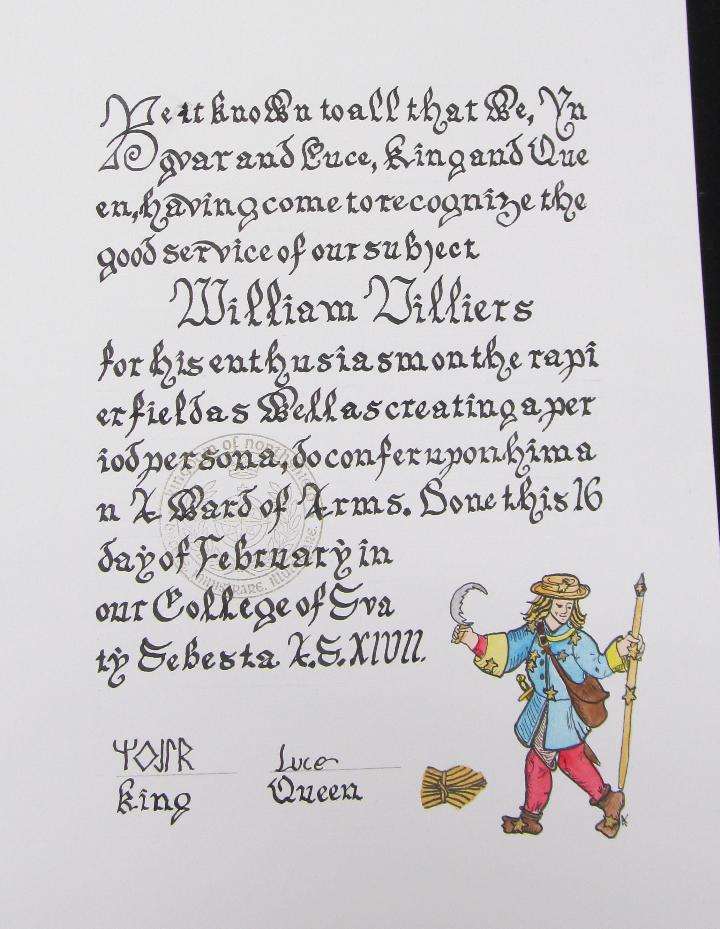 Be it known to all that We, Yn
gvar and Luce, King and Que
en, having come to recognize the
good service of our subject
William Villiers
for his enthusiasm on the rapi
er field as well as creating a per
iod persona, do confer upon him a
n Award of Arms. Done this 16
day of February in
our College of Sva
ty Sebesta A.S. XLVII.
Luce
King Queen